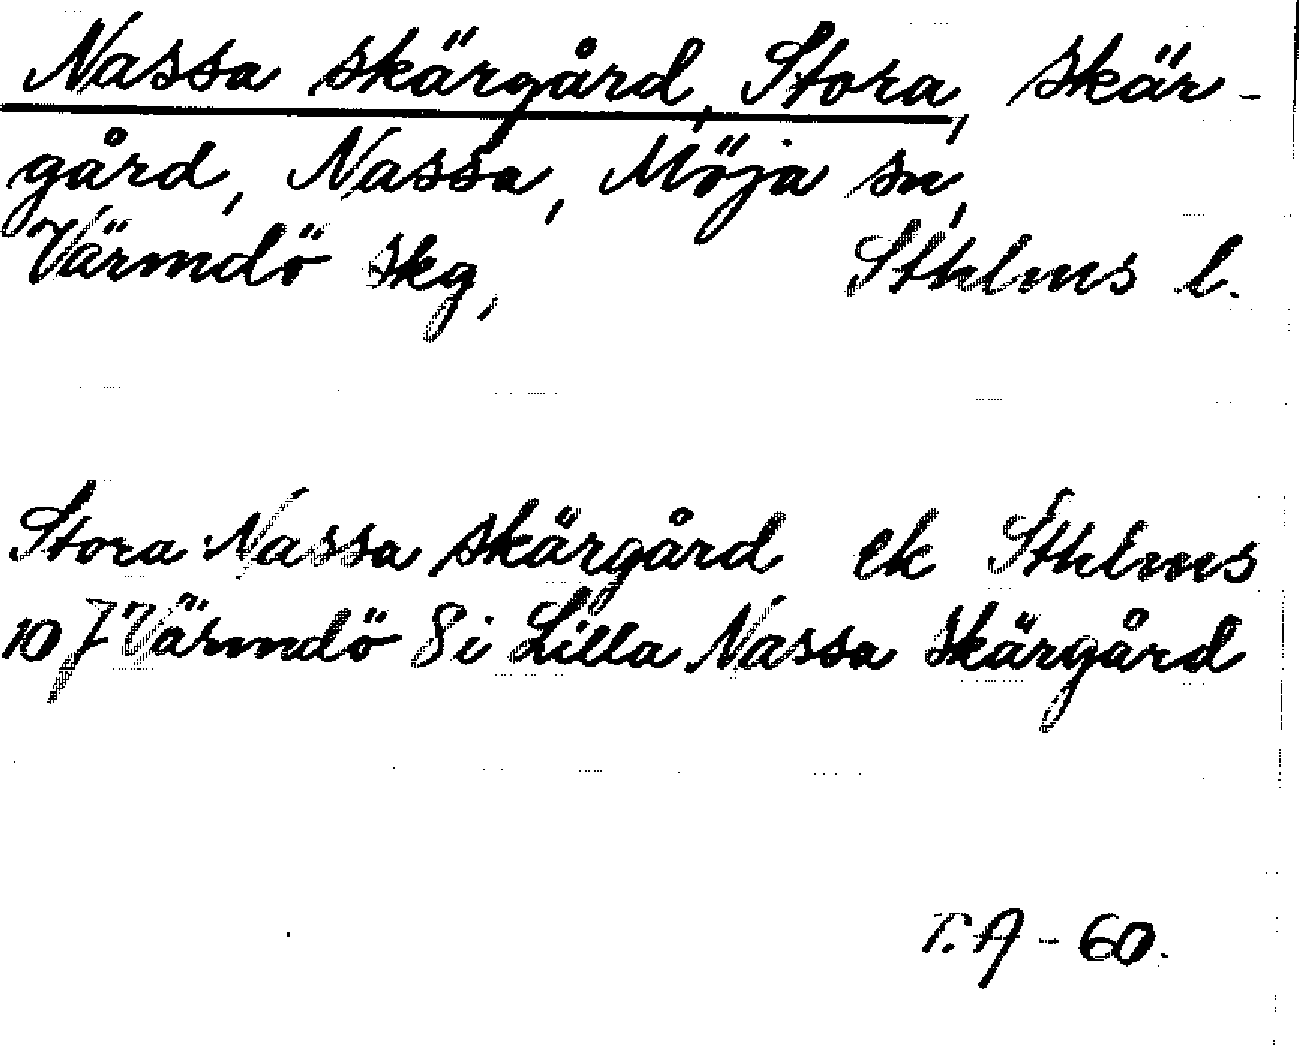 Nassa skärgård, Stora, skär-
gård, Nassa, Möja sn,
Värmdö skg, Sthlms l.
Stora Nassa skärgård ek Sthlms
10 J Värmdö 8 i Lilla Nassa skärgård
T. A - 60.